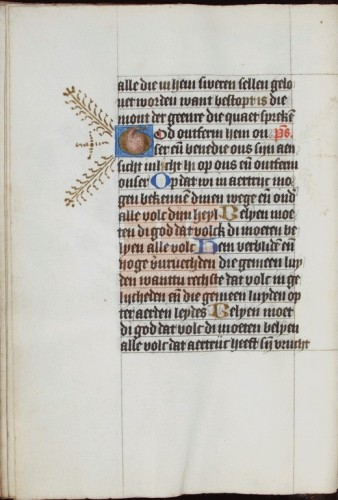 alle die in hem sweren sellen gelo
uet worden want bestopt is die
mont der geenre die quaet sprekē
God ontferm hem on ps.
ser eñ benedie ons sijn aen
sicht hi op ons eñ ontferm
onser Op dat wi in aertrijc mo
gen bekennē dinen wege eñ
alle volc dijn heyl Belyen moe
ten di god dat volck di moeten be
lyen alle volc Hem verblidē eñ
hoge die gemeen luy
den wanttu rechste dat volc in ge
lijcheden eñ die gemeen luyden op
ter aerden leydes Belyen moet
di god dat volc di moeten belyen
alle volc dat aertrijc heeft sijn vrucht